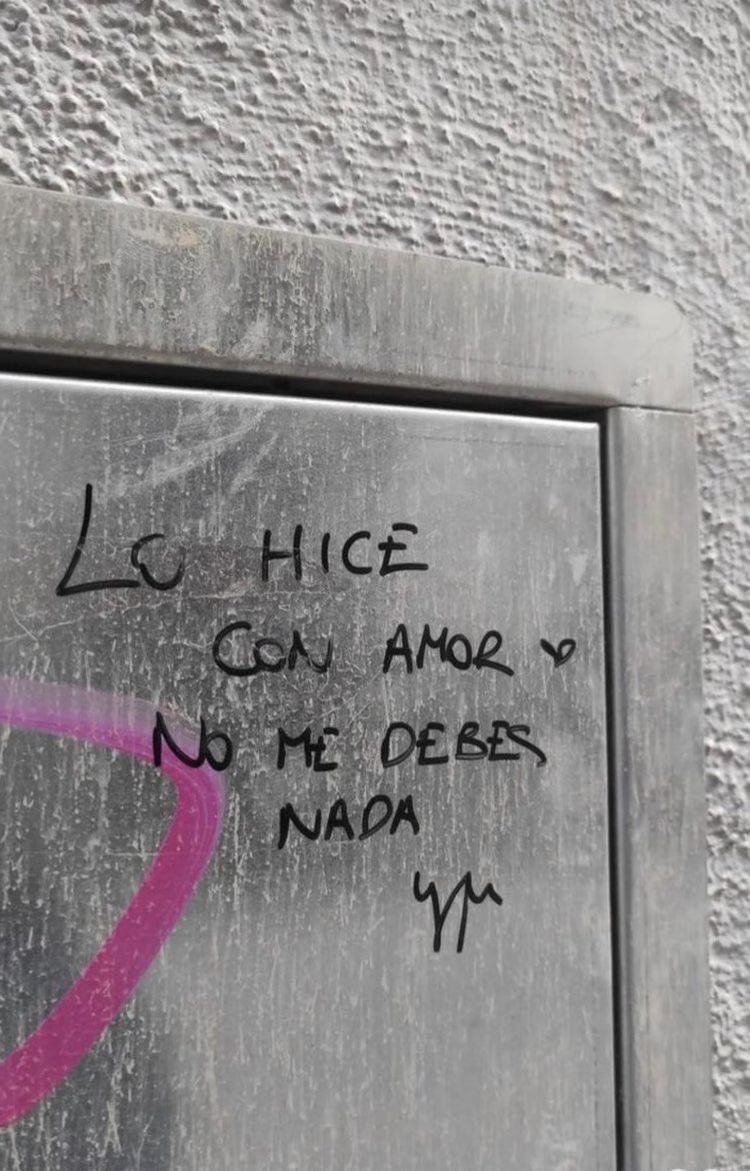 LO HICE
CON AMOR ♥
NO ME DEBES
NADA